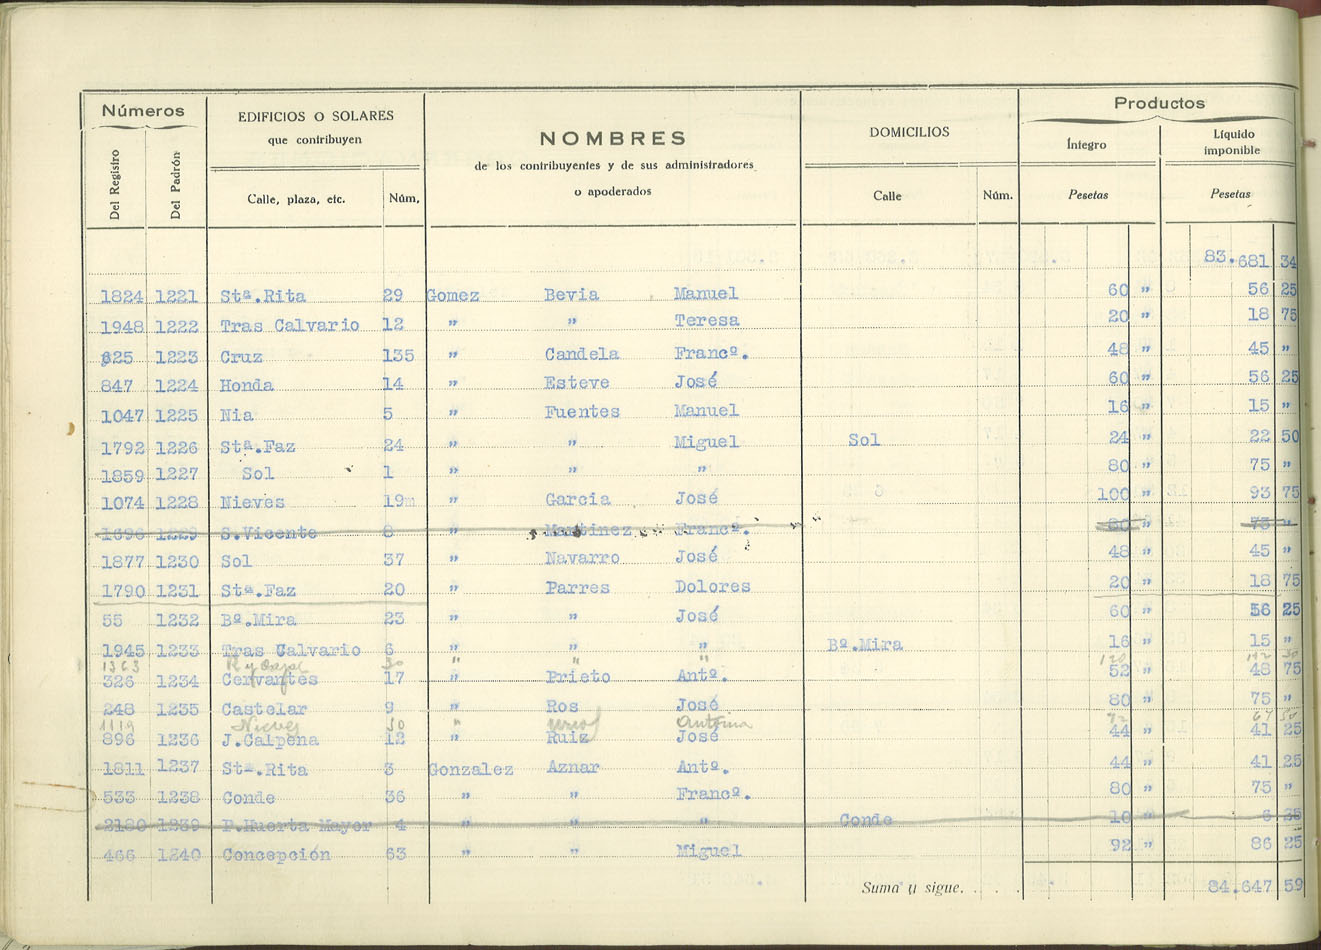 Números
EDIFICIOS O SOLARES
que contribuyen
NOMBRES
de los contribuyentes y de sus administradores
o apoderados
DOMICILIOS
Productos
Del Registro
Del Padrón
Calle, plaza, etc.
Núm.
Calle
Núm.
Íntegro
Pesetas
Líquido
imponible
Pesetas
83.681 34
1824 1221 Stª.Rita 29 Gomez Bevia Manuel 60 " 56 25
1948 1222 Tras Calvario 12 " " Teresa 20 " 18 75
625 1223 Cruz 135 " Candela Francº. 48 " 45 "
847 1224 Honda 14 " Esteve José 60 " 56 25
1047 1225 Nia 5 " Fuentes Manuel 16 " 15 "
1792 1226 Stª.Faz 24 " " Miguel Sol 24 " 22 50
1859 1227 Sol 1 " " " 80 " 75 "
1074 1228 Nieves 19m " Garcia José 100 " 93 75
1696 1229 S.Vicente 8 " Mantinez Francº. 80 " 75 "
1877 1230 Sol 37 " Navarro José 48 " 45 "
1790 1231 Stª.Faz 20 " Parres Dolores 20 " 18 75
55 1232 Bº.Mira 23 " " José 60 " 56 25
1945 1233 Tras Calvario 6 " " " Bº.Mira 16 " 15 "
1363 30 " " " 120
326 1234 Cervantes 17 " Prieto Antº. 52 " 48 75
248 1235 Castelar 9 " Ros José 80 " 75 "
1119 Nieves 50 " Antonia
896 1236 J.Calpena 12 " Ruiz José 44 " 41 25
1811 1237 Stª.Rita 3 Gonzalez Aznar Antº. 44 " 41 25
533 1238 Conde 36 " " Francº. 80 " 75 "
2180 1239 P.Huerta Mayor 4 " " " Conde 10 " 6 35
466 1240 Concepción 63 " " Miguel 92 " 86 25
Suma y sigue. . . . 84.647 59